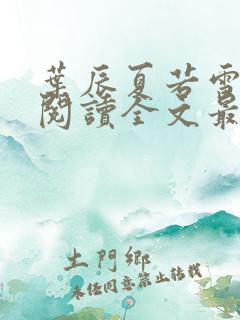 葉辰夏若雪
閱讀全文最
土門鄉
未經同意禁止轉載